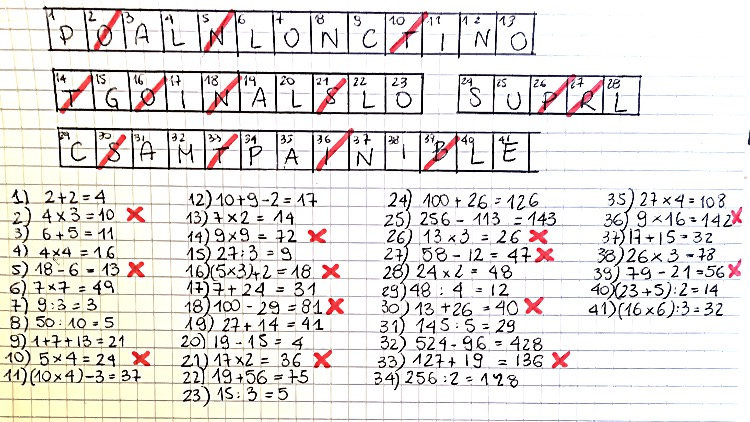 1 2 3 4 5 6 7 8 9 10 11 12 13
P O A L N L O N C T I N O
14 15 16 17 18 19 20 21 22 23
T G O I N A L S L O
24 25 26 27 28
S U P R L
29 30 31 32 33 34 35 36 37 38 39 40 41
C S A M T P A I N I B L E
1) 2+2=4
2) 4×3=10
3) 6+5=11
4) 4×4=16
5) 18-6=13
6) 7×7=49
7) 9:3=3
8) 50:10=5
9) 1+7+13=21
10) 5×4=24
11) (10×4)-3=37
12) 10+9-2=17
13) 7×2=14
14) 9×9=72
15) 27:3=9
16) (5×3)+2=18
17) 7+24=31
18) 100-29=81
19) 27+14=41
20) 19-15=4
21) 17×2=36
22) 19+56=75
23) 15:3=5
24) 100+26=126
25) 256-113=143
26) 13×3=26
27) 58-12=47
28) 24×2=48
29) 48:4=12
30) 13+26=40
31) 145:5=29
32) 524-96=428
33) 127+19=136
34) 256:2=128
35) 27×4=108
36) 9×16=142
37) 17+15=32
38) 26×3=78
39) 79-21=56
40) (23+5):2=14
41) (16×6):3=32